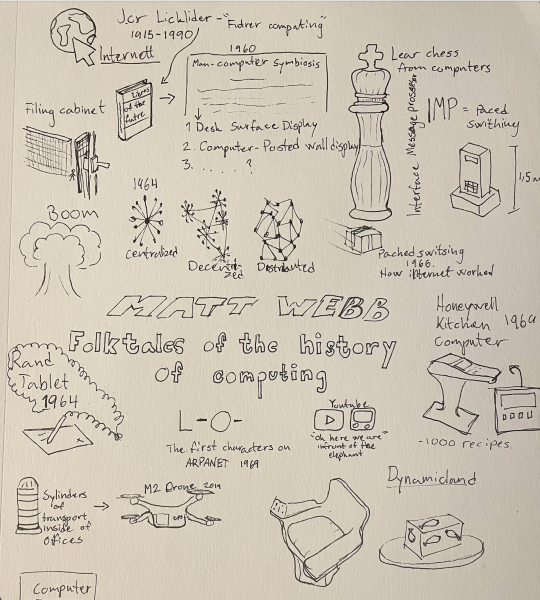 Jcr Licklider - "Fudrer computing"
1915-1990
Internett
1960
Man-computer symbiosis
Lear chess
from computers
Filing cabinet
Libres
of the
futre
1 Desk Surface Display
2. Computer-Posted wall display
3. . . . . . ?
Interface Message prossesor
IMP = paced
swithing
1,5 m
Boom
1964
Centralized
Decentri-
zed
Distributed
Pached switsing
1966.
How internet worked
MATT WEBB
Folktales of the history
of computing
Honeywell
Kitchen 1969
Computer
~1000 recipes.
Rand
Tablet
1964
L-O-
The first characters on
ARPANET 1969
Youtube
"Oh here we are"
infrunt of the
elephant
Sylinders
of
transport
inside of
offices
M2 Drone 2011
Dynamicland
Computer